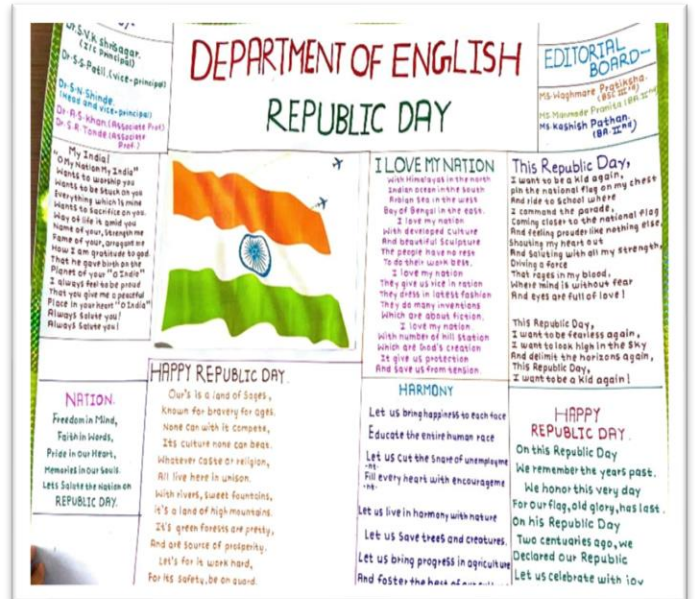 Dr.S.V.K Shrisagar.
(I/c Principal)
Dr.S.S.Patil.(vice-principal)
Dr.S.N.Shinde.
(Head and vice-principal)
Dr.A.S.khan.(Associate Prof)
Dr.S.R.Tonde(Associate
Prof.)
DEPARTMENT OF ENGLISH
REPUBLIC DAY
EDITORIAL
BOARD—
Ms.Waghmare Pratiksha.
(BSC IIIrd)
Ms.Manmode Pranita (BA.IInd)
Ms Kashish Pathan.
(BA.IInd)
My India!
"O My Nation My India"
Wants to worship you
Wants to be stuck on you
Everything which is mine
Wants to Sacrifice on you.
Way of life it amid you
Name of your, Strength me
Fame of your, arrogant me
How I am gratitude to god
That he gave birth on the
Planet of your "O India"
I always feel to be proud
That you give me a peaceful
Place in your heart "O India"
Always Salute you!
Always Salute you!
I LOVE MY NATION
With Himalayas in the north
Indian ocean in the South
Arbian Sea in the west
Bay of Bengal in the east.
I love my nation
With developed Culture
And beautiful Sculpture
The people have no rest
To do their work best.
I love my nation
They give us vice in ration
They dress in latest fashion
They do many inventions
Which are about fiction.
I love my nation
With number of hill Station
Which are God's creation
It give us protection
And Save us from tension.
This Republic Day,
I want to be a kid again,
Pin the national flag on my chest
And ride to School where
I command the parade,
Coming closer to the national flag
And feeling prouder like nothing else,
Shouting my heart out
And Saluting with all my strength,
Driving a force
That rages in my blood,
Where mind is without fear
And eyes are full of love!
This Republic Day,
I want to be fearless again,
I want to look high in the Sky
And delimit the horizons again,
This Republic Day,
I want to be a kid again!
NATION.
Freedom in Mind,
Faith in Words,
Pride in our Heart,
Memories in our Souls.
Lets Salute the Nation on
REPUBLIC DAY.
HAPPY REPUBLIC DAY.
Our's is a land of Sages,
Known for bravery for ages.
None can with it compete,
Its culture none can beat.
Whatever caste or religion,
All live here in unison.
With rivers, sweet fountains,
it's a land of high mountains.
It's green forests are pretty,
And are source of prosperity.
Let's for it work hard,
For its safety, be on guard.
HARMONY
Let us bring happiness to each face
Educate the entire human race
Let us cut the Snare of unemployme
-nt.
Fill every heart with encourageme
-nt.
Let us live in harmony with nature
Let us Save trees and creatures.
Let us bring progress in agriculture
And foster the best of
HAPPY
REPUBLIC DAY.
On this Republic Day
We remember the years past.
We honor this very day
For our flag, old glory, has last.
On his Republic Day
Two centuaries ago, we
Declared our Republic
Let us celebrate with joy